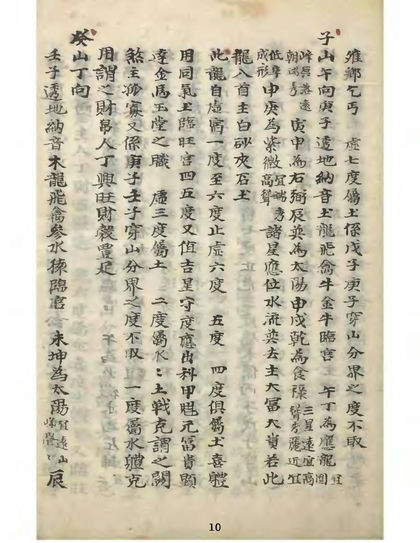 雅鄉乞丐 虛七度屬土係戊子庚子穿山分界之度不取
子山午向庚子透地納音土龍飛禽牛金牛臨官 午丁為應龍宜
峰巒遠朝 寅甲為右弼辰巽為太陽申戌乾為食祿 三星遠宜高聳秀麗近宜
低成形 申庚為紫微宜高聳 諸星應位水流巽去主大富大貴若此
龍入首主白砂夾石土
此龍自虛宿一度至六度止虛六度 五度 四度俱屬土喜軆
用同氣土臨旺宮四五度又值吉星守度應出科甲魁元富貴顯
達金馬玉堂之職 虛三度屬土 二度屬水:土戰克謂之關
煞主孤寡又係庚子壬子穿山分界之度不取 一度屬水軆克
用謂之財帛人丁興旺財穀豐足
癸山丁向
壬子透地納音木龍飛禽參水猿臨官 未坤為太陽宜遠山 辰
10